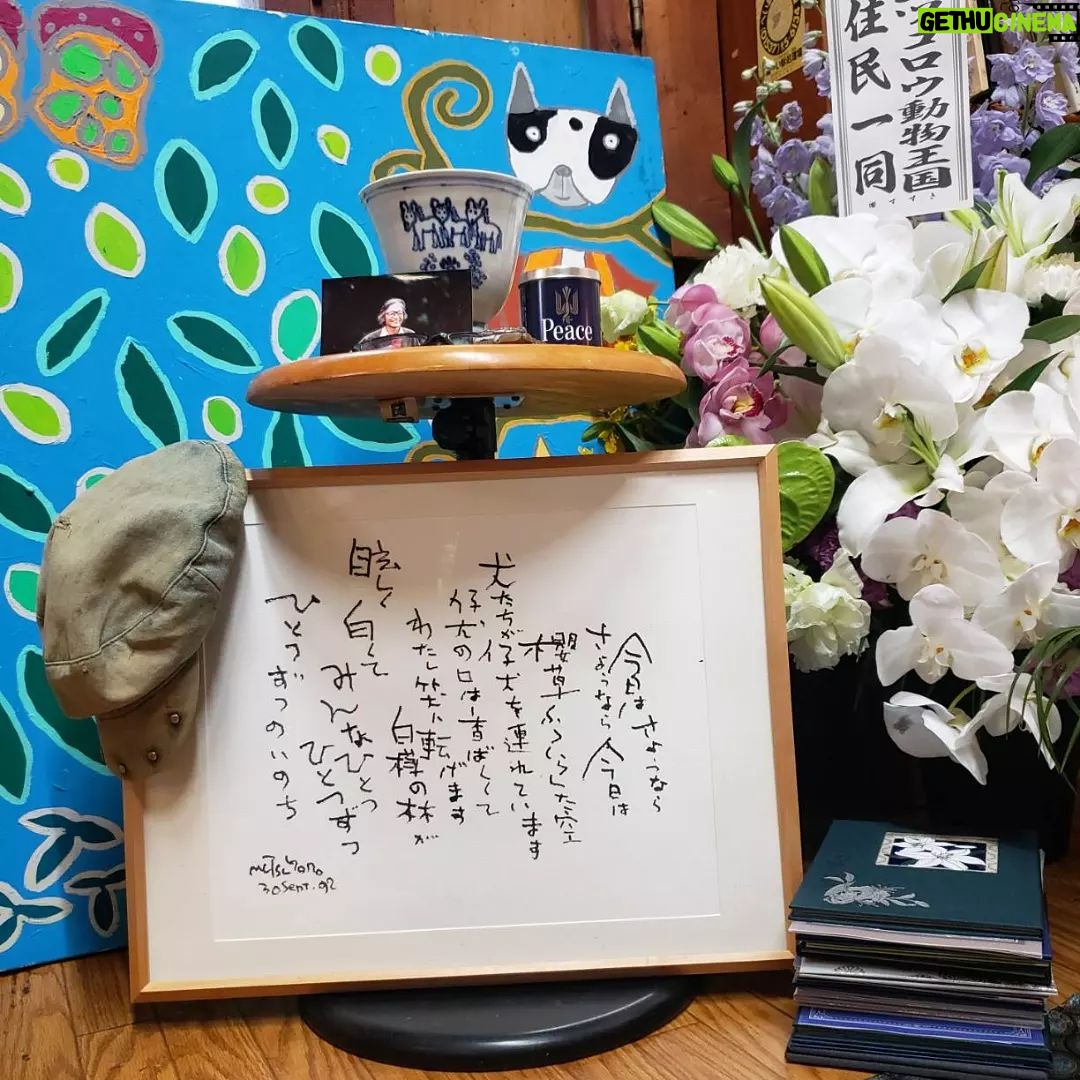 GETHUCINEMA
ゴロウ動物王国
住民一同
Peace
今日はさようなら
さようなら 今日は
櫻草 空
犬たちが仔犬を連れています
仔犬の口は香ばしくて
わたし笑い転げます
白樺の林が
眩しく 白くて
みんなひとつ
ひとつずつ
ひとつずつのいのち
30 Sept. 92